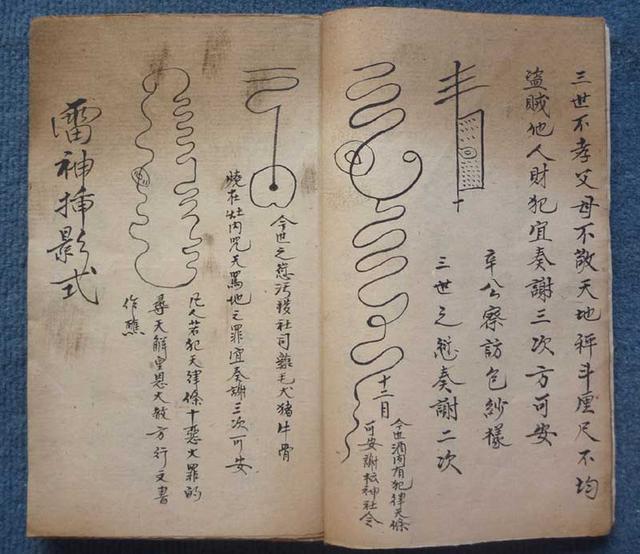 三世不孝父母不敬天地秤斗厘尺不均
盗賊他人財犯宜奏謝三次方可安
辛公察訪包紗樣
三世之愆奏謝二次
十二月
今世酒肉有犯律天條
可安謝 神社令
今世之愆污穢社司 毛犬猪牛骨
燒在灶内咒天罵地之罪宜奏謝三次可安
凡人若犯天律條十惡大罪的
尋天解皇恩大赦方行文書
作醮
雷神 影式